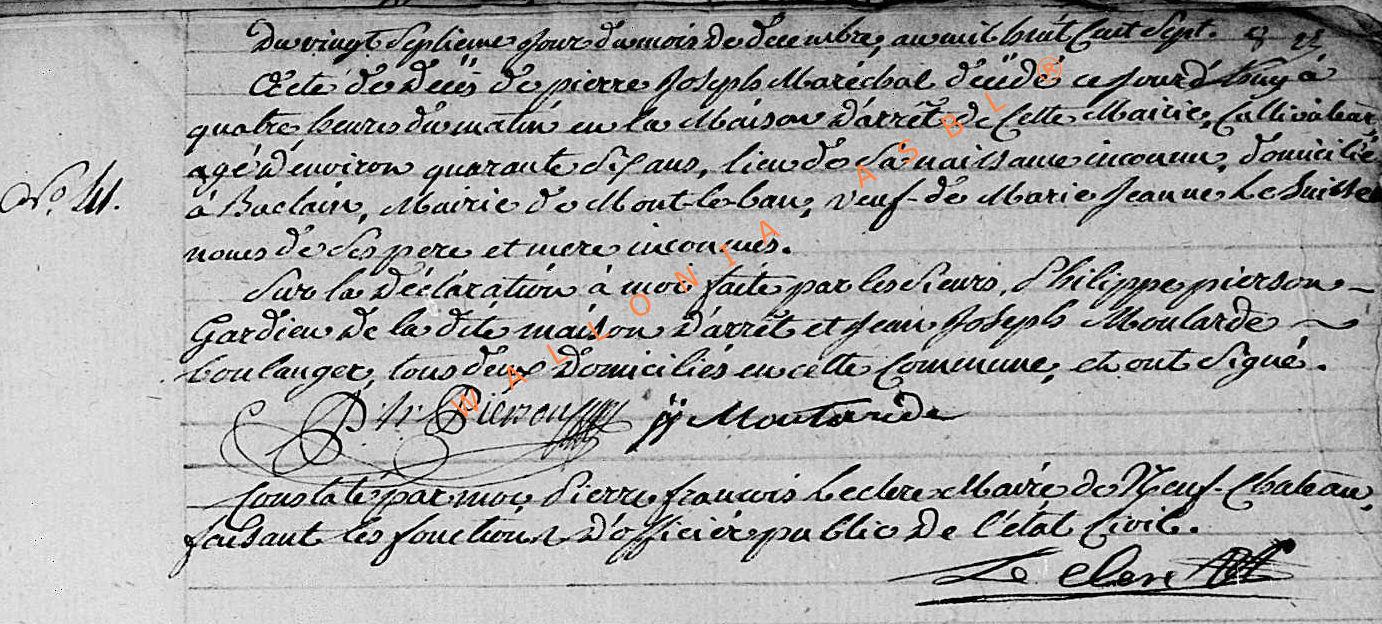 Du vingt Septieme Jour du mois de decembre, an mil huit Cent Sept.
Acte de décès de pierre Joseph Maréchal décédé ce jourd'huy à
quatre heures du matin en la Maison d'arrêt de Cette Mairie, Cultivateur
agé d'environ quarante Six ans, lieu de Sa naissance inconnu, domicilié
No. 41.
à Baclain, Mairie de Mont-le-ban, veuf de Marie Jeanne Le Suisse
noms de Ses pere et mere inconnus.
Sur la Déclaration à moi faite par les Sieurs, Philippe pierson
Gardien de la dite maison d'arrêt et Jean Joseph Moutarde
boulanger, tous deux Domiciliés en cette Commune, et ont Signé.
Ph Pierson JJ Moutarde
Constaté par moi, Pierre françois Leclerc Maire de Neuf-Chateau,
faisant les fonctions d'officier public de l'état Civil.
Le Clerc
WALLONIA ASBL ®